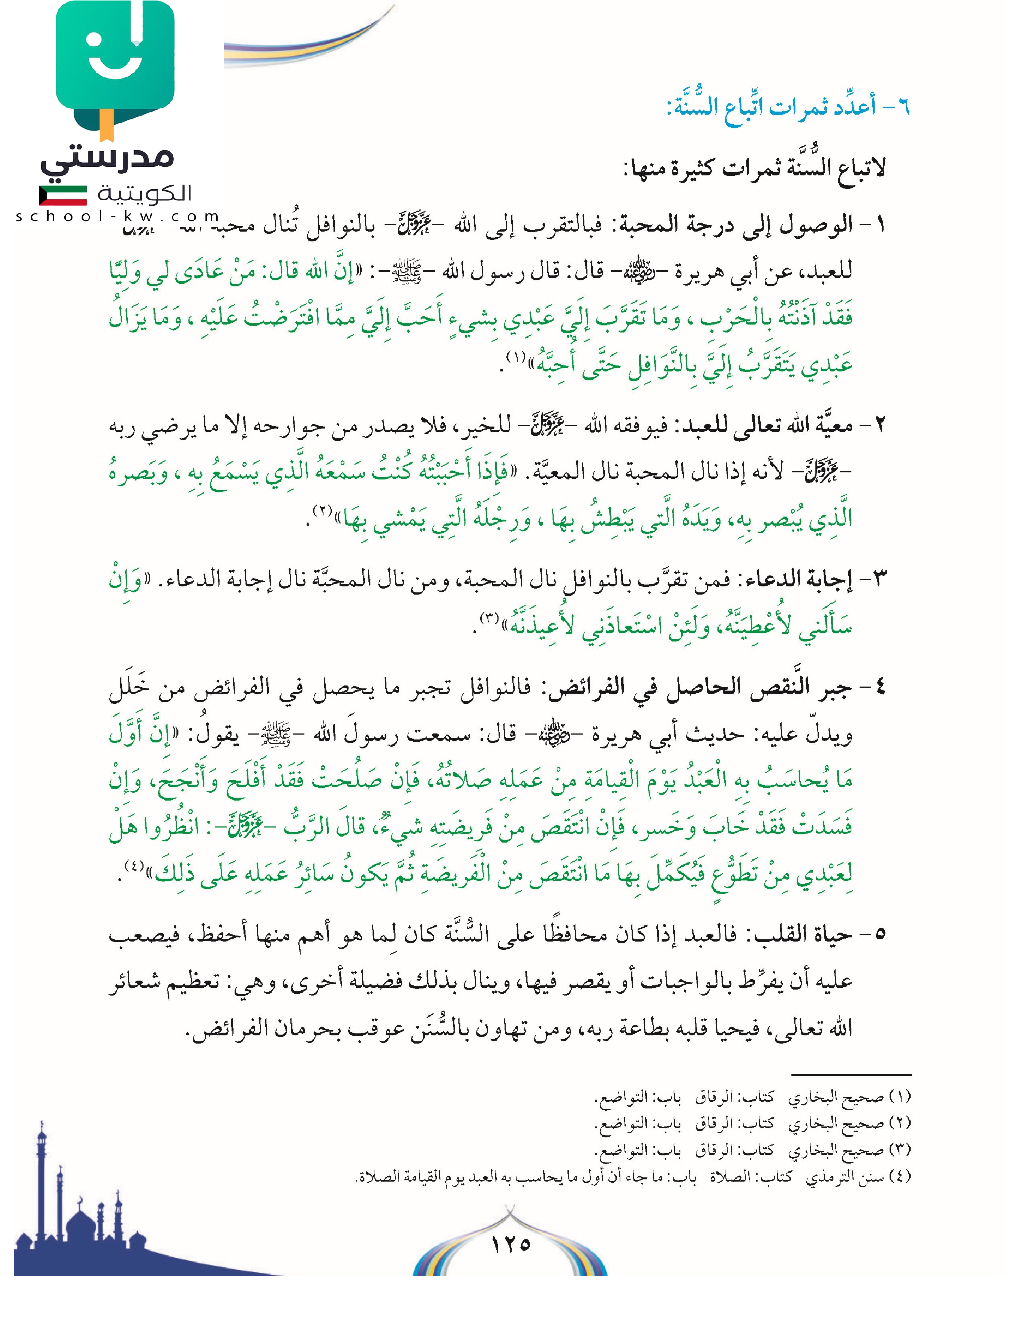 مدرستي
الكويتية
school-kw.com
٦- أعدِّد ثمرات اتِّباع السُّنَّة:
لاتباع السُّنَّة ثمرات كثيرة منها:
١- الوصول إلى درجة المحبة: فبالتقرب إلى الله -عَزَّوَجَلَّ- بالنوافل تُنال محبة
للعبد، عن أبي هريرة -رضي الله عنه- قال: قال رسول الله -ﷺ-: «إِنَّ الله قال: مَنْ عَادَى لي وَلِيًّا
فَقَدْ آذَنْتُهُ بِالْحَرْبِ، وَمَا تَقَرَّبَ إِلَيَّ عَبْدِي بِشيءٍ أَحَبَّ إِلَيَّ مِمَّا افْتَرَضْتُ عَلَيْهِ، وَمَا يَزَالُ
عَبْدِي يَتَقَرَّبُ إِلَيَّ بِالنَّوَافِلِ حَتَّى أُحِبَّهُ»(١).
٢- معيَّة الله تعالى للعبد: فيوفقه الله -عَزَّوَجَلَّ- للخير، فلا يصدر من جوارحه إلا ما يرضي ربه
-عَزَّوَجَلَّ- لأنه إذا نال المحبة نال المعيَّة. «فَإِذَا أَحْبَبْتُهُ كُنْتُ سَمْعَهُ الَّذِي يَسْمَعُ بِهِ، وَبَصَرهُ
الَّذِي يُبْصر بِهِ، وَيَدَهُ الَّتي يَبْطِشُ بِهَا، وَرِجْلَهُ الَّتِي يَمْشي بِهَا»(٢).
٣- إجابة الدعاء: فمن تقرَّب بالنوافل نال المحبة، ومن نال المحبَّة نال إجابة الدعاء. «وَإِنْ
سَأَلَني لأُعْطِيَنَّهُ، وَلَئِنْ اسْتَعاذَنِي لأُعِيذَنَّهُ»(٣).
٤- جبر النَّقص الحاصل في الفرائض: فالنوافل تجبر ما يحصل في الفرائض من خَلَل
ويدلّ عليه: حديث أبي هريرة -رضي الله عنه- قال: سمعت رسولَ الله -ﷺ- يقولُ: «إِنَّ أَوَّلَ
مَا يُحاسَبُ بِهِ الْعَبْدُ يَوْمَ الْقِيامَةِ مِنْ عَمَلِهِ صَلاتُهُ، فَإِنْ صَلُحَتْ فَقَدْ أَفْلَحَ وَأَنْجَحَ، وَإِنْ
فَسَدَتْ فَقَدْ خَابَ وَخَسر، فَإِنْ انْتَقَصَ مِنْ فَرِيضَتِهِ شيءٌ، قالَ الرَّبُّ -عَزَّوَجَلَّ-: انْظُرُوا هَلْ
لِعَبْدِي مِنْ تَطَوُّعٍ فَيُكَمِّلَ بِهَا مَا انْتَقَصَ مِنْ الْفَرِيضَةِ ثُمَّ يَكونُ سَائِرُ عَمَلِهِ عَلَى ذَلِكَ»(٤).
٥- حياة القلب: فالعبد إذا كان محافظًا على السُّنَّة كان لِما هو أهم منها أحفظ، فيصعب
عليه أن يفرِّط بالواجبات أو يقصر فيها، وينال بذلك فضيلة أخرى، وهي: تعظيم شعائر
الله تعالى، فيحيا قلبه بطاعة ربه، ومن تهاون بالسُّنَن عوقب بحرمان الفرائض.
(١) صحيح البخاري كتاب: الرقاق باب: التواضع.
(٢) صحيح البخاري كتاب: الرقاق باب: التواضع.
(٣) صحيح البخاري كتاب: الرقاق باب: التواضع.
(٤) سنن الترمذي كتاب: الصلاة باب: ما جاء أن أول ما يحاسب به العبد يوم القيامة الصلاة.
١٢٥